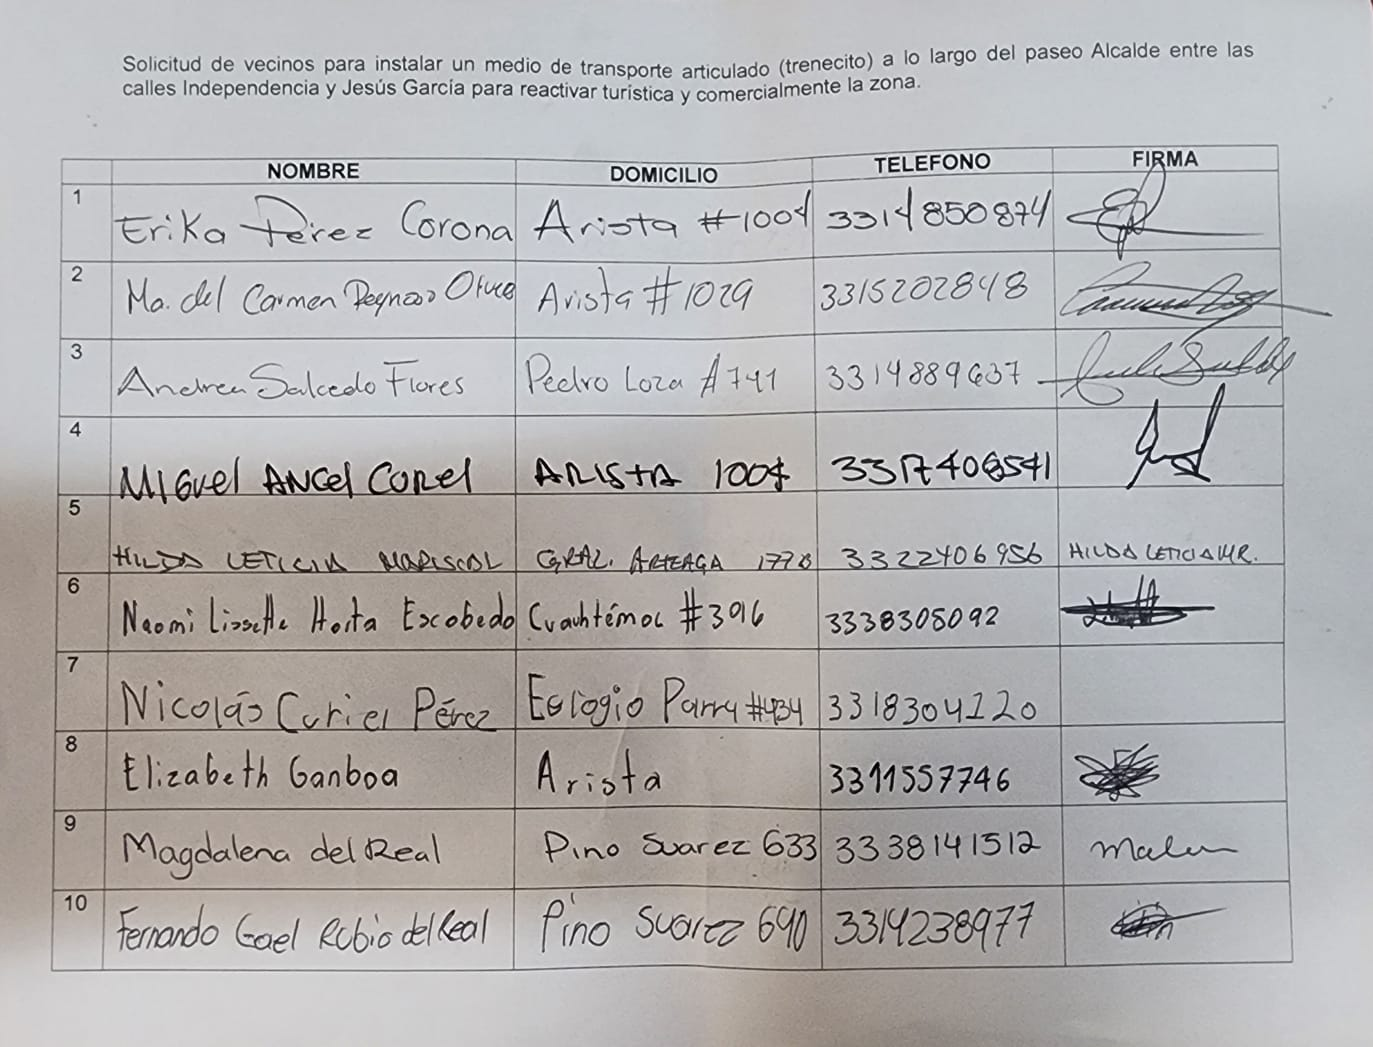 Solicitud de vecinos para instalar un medio de transporte articulado (trenecito) a lo largo del paseo Alcalde entre las
calles Independencia y Jesús García para reactivar turística y comercialmente la zona.
NOMBRE DOMICILIO TELEFONO FIRMA
1 Erika Pérez Corona Arista #1004 3314850874
2 Ma. del Carmen Arista #1029 3315202848
3 Andrea Salcedo Flores Pedro Loza #741 3314889637
4 MIGUEL ANGEL CURIEL ARISTA 1004
5 HILDA LETICIA MARISCAL GRAL. ARTEAGA 1778 3322406956 HILDA LETICIA M.R.
6 Naomi Lissette Horta Escobedo Cuauhtémoc #396 3338305092
7 Nicolás Curiel Pérez Eulogio Parra #434 3318304120
8 Elizabeth Ganboa Arista 3311557746
9 Magdalena del Real Pino Suarez 633 3338141512 Malen
10 Fernando Gael Rubio del Real Pino Suarez 690 3314238977